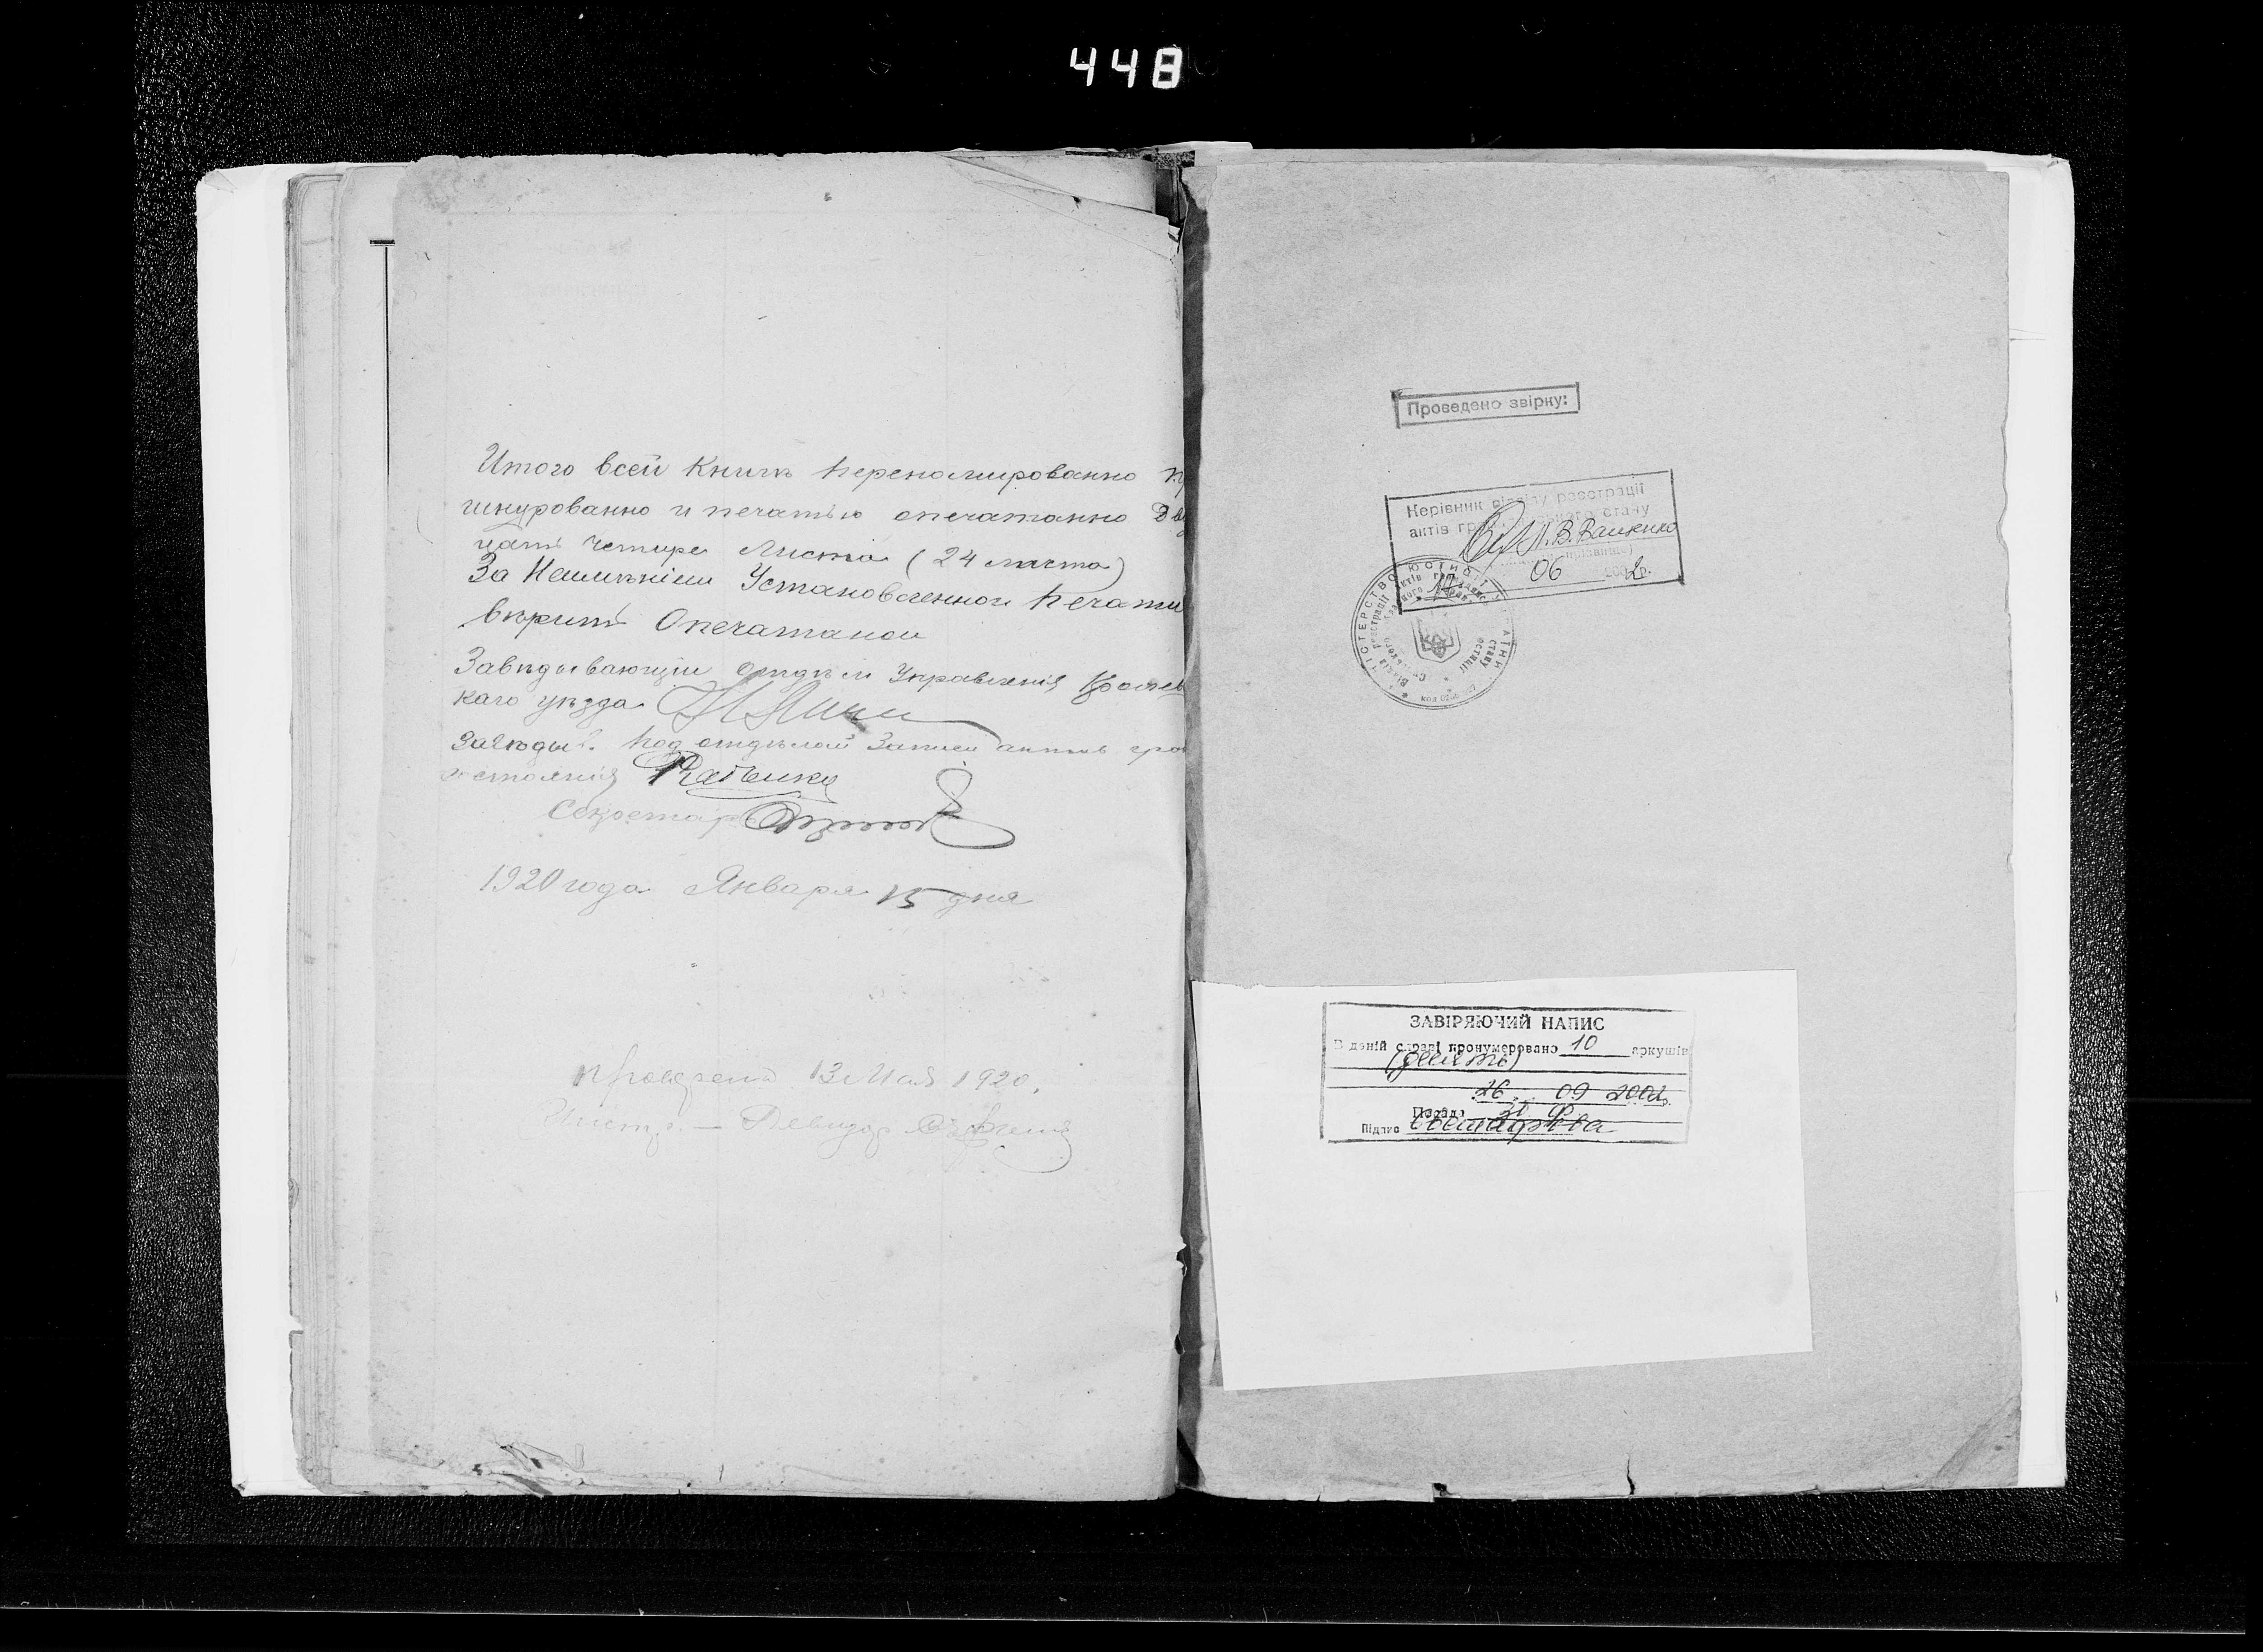 448
Итого всей Книгѣ переномированно пр
шнурованно и печатью опечатанно Два
цать Четыре Листа (24 листа)
За Неимѣніем Установленной Печати
вѣрить Опечатаной
Завѣдывающій отдѣлом Управленія
каго уѣзда
Завѣдыв. Под отдѣлой Записи актов гра
состоянія
Секретарь
1920 года Января 15 дня
Проверено 13 Мая 1920.
Инстр. — Ревизор
Проведено звірку:
Керівник відділу реєстрації
актів громадянського стану
Л.В. Ващенко
06 2002 р.
ЗАВІРЯЮЧИЙ НАПИС
В даній справі пронумеровано 10 аркушів
(десять)
26. 09 2002р.
Посада
Підпис